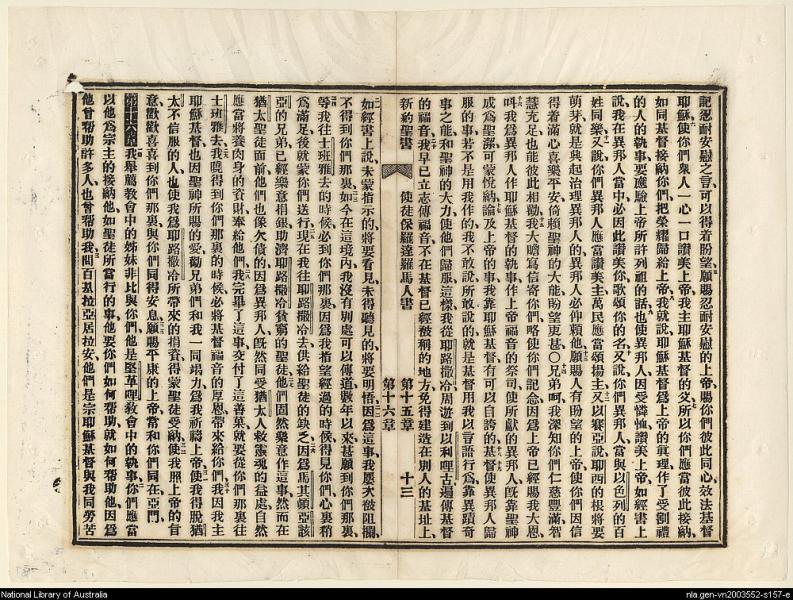 記忍耐安慰之言可以得着盼望願賜忍耐安慰的上帝賜你們彼此同心效法基督
耶穌使你們衆人一心一口讚美上帝我主耶穌基督的父所以你們應當彼此接納
如同基督接納你們把榮耀歸給上帝我就說耶穌基督爲上帝的眞理作了受割禮
的人的執事要應驗上帝所許列祖的話也使異邦人因受憐恤讚美上帝如經書上
說我在異邦人當中必因此讚美你歌頌你的名又說你們異邦人當與以色列的百
姓同樂又說你們異邦人應當讚美主萬民應當頌揚主又以賽亞說耶西的根將要
萌芽就是興起治理異邦人的異邦人必仰賴他願賜人有盼望的上帝使你們因信
得着滿心喜樂平安倚賴聖神的大力能盼望更甚〇兄弟呵我深知你們仁慈豐滿智
慧充足也能彼此相勸我大膽寫信寄你們略使你們記念因爲上帝已經賜我大恩
叫我爲異邦人作耶穌基督的執事作上帝福音的祭司使所獻的異邦人旣靠聖神
成爲聖潔可蒙悅納論及上帝的事我靠耶穌基督有可以自誇的基督使異邦人歸
服的事若不是用我作的我不敢說所敢說的就是基督用我以言語行爲靠異蹟奇
事之能和聖神的大力使他們歸服這樣我從耶路撒冷周遊到以利哩古遍傳基督
的福音我早已立志傳福音不在基督已經被稱的地方免得建造在別人的基址上
新約聖書 使徒保羅達羅馬人書 第十五章 第十六章 十三
如經書上說未蒙指示的將要看見未得聽見的將要明悟因爲這事我屢次被阻攔
不得到你們那裏如今在這境內我沒有別處可以傳道數年以來甚願到你們那裏
等我往士班雅去的時候必到你們那裏因爲我指望經過的時候得見你們心裏稍
爲滿足後就蒙你們送行現在我往耶路撒冷去供給聖徒的缺乏因爲馬其頓亞該
亞的兄弟已經樂意捐銀助濟耶路撒冷貧窮的聖徒他們固然樂意作這事然而在
猶太聖徒面前他們也像欠債的因爲異邦人旣然同受猶太人救靈魂的益處自然
應當將養肉身的資財奉給他們我完畢了這事交付了這善果就要從你們那裏往
士班雅去我曉得到你們那裏的時候必將基督福音的厚恩帶來給你們我因我主
耶穌基督也因聖神所賜的愛勸兄弟們和我一同竭力爲我祈禱上帝使我得脫猶
太不信服的人也使我爲耶路撒冷所帶來的捐資得蒙聖徒受納使我照上帝的旨
意歡歡喜喜到你們那裏與你們同得安息願賜平康的上帝常和你們同在亞門
第十六章 我舉薦敎會中的姊妹非比與你們他是堅革哩敎會中的執事你們應當
以他爲宗主的接納他如聖徒所當行的事他要你們如何幫助就如何幫助他因爲
他曾幫助許多人也曾幫助我問百基拉亞居拉安他們是宗耶穌基督與我同勞苦
National Library of Australia
nla.gen-vn2003552-s157-e